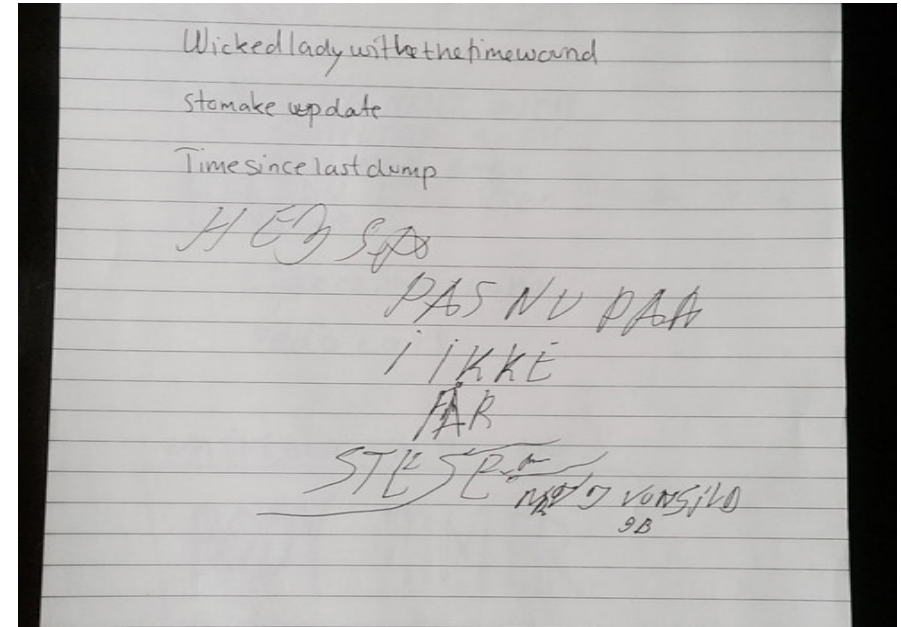 Wickedladywithethetimewound
Stomake update
Timesincelastdump
HEJ
PAS NU PAA
I IKKE
FÅR
STESE